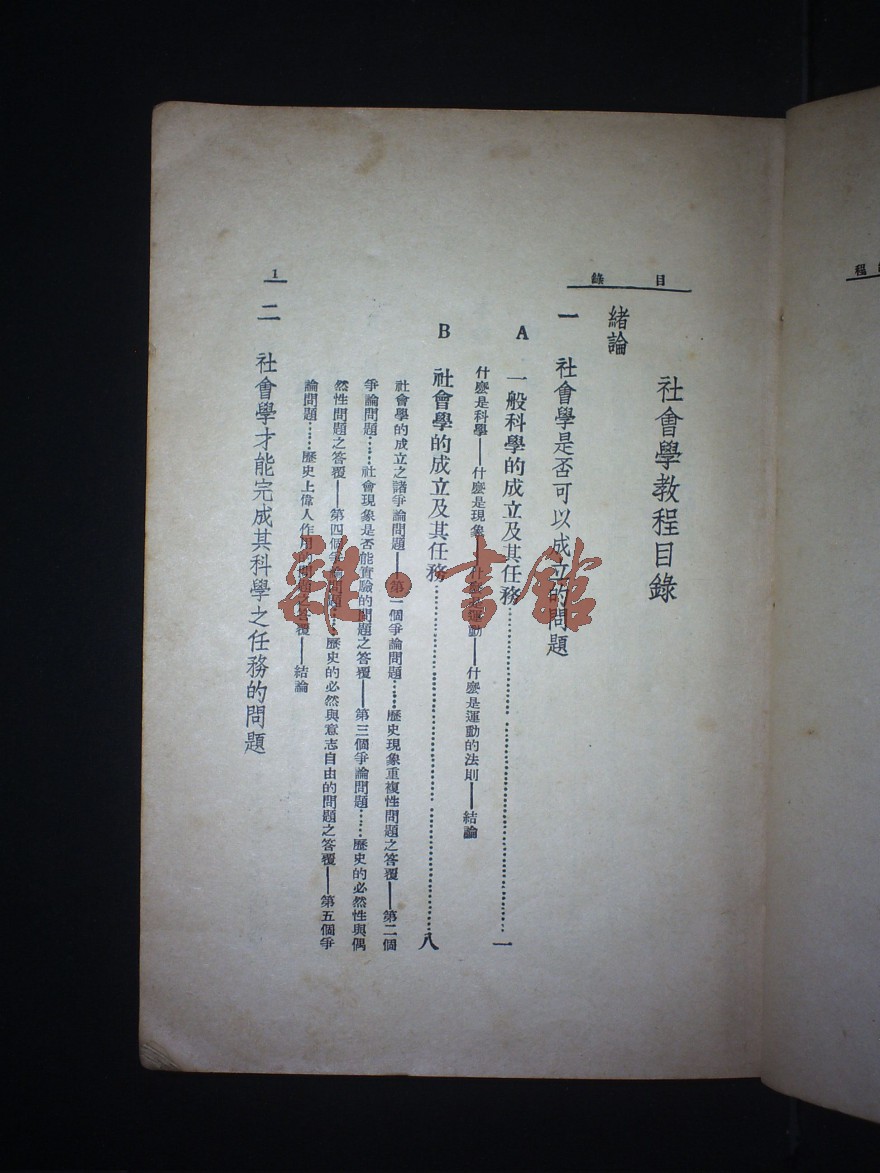 目錄
社會學教程目錄
緒論
一 社會學是否可以成立的問題
A 一般科學的成立及其任務……一
什麽是科學——什麽是現象——什麽是運動——什麽是運動的法則——結論
B 社會學的成立及其任務……八
社會學的成立之諸爭論問題——第一個爭論問題……歷史現象重複性問題之答覆——第二個
爭論問題……社會現象是否能實驗的問題之答覆——第三個爭論問題……歷史的必然性與偶
然性問題之答覆——第四個爭論問題……歷史的必然與意志自由的問題之答覆——第五個爭
論問題……歷史上偉人作用的問題之答覆——結論
二 社會學才能完成其科學之任務的問題
1
雜·書館
程